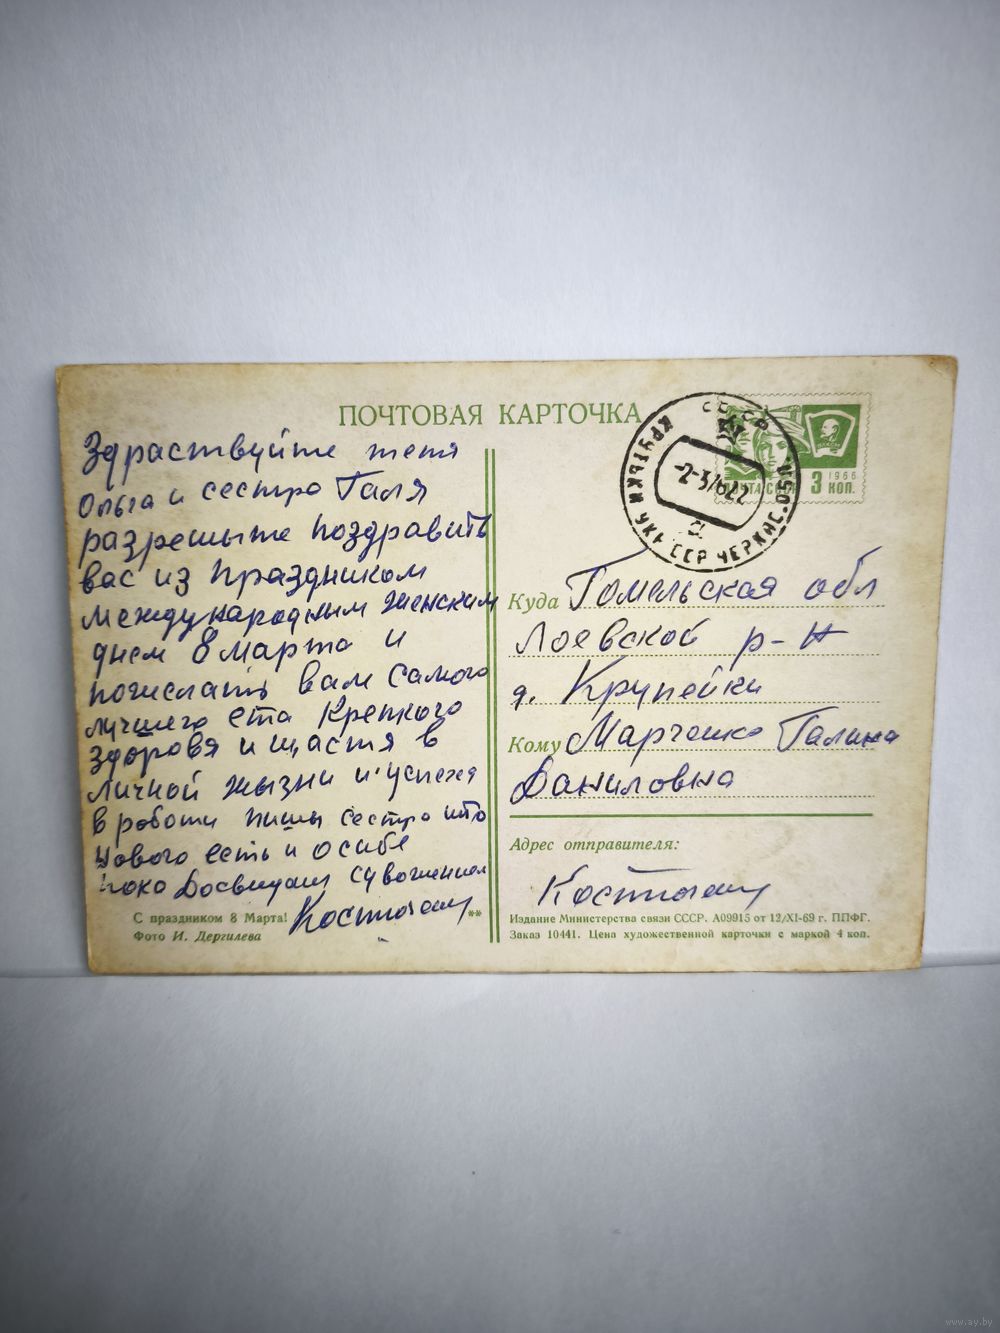 ПОЧТОВАЯ КАРТОЧКА
Здраствуйте тетя
Ольга и сестра Галя
разрешыте поздравить
вас из праздником
международным женским
днем 8 марта и
пожелать вам самого
лучшего ета крепкого
здоровя и щастя в
личной жызни и успеха
в работи пишы сестра што
нового есть и о себе
пока Досвидания
С праздником 8 Марта!
Фото И. Дергилева
**
СССР
КРУПЬКИ УКР ССР ЧЕРКАС. ОБЛ.
ПОЧТА СССР
1966
3 КОП.
Куда Гомельская обл
Лоевской р-н
д. Крупейки
Кому Марченко Галина
Даниловна
Адрес отправителя:
Издание Министерства связи СССР. А09915 от 12/XI-69 г. ППФГ.
Заказ 10441. Цена художественной карточки с маркой 4 коп.
www.ay.by